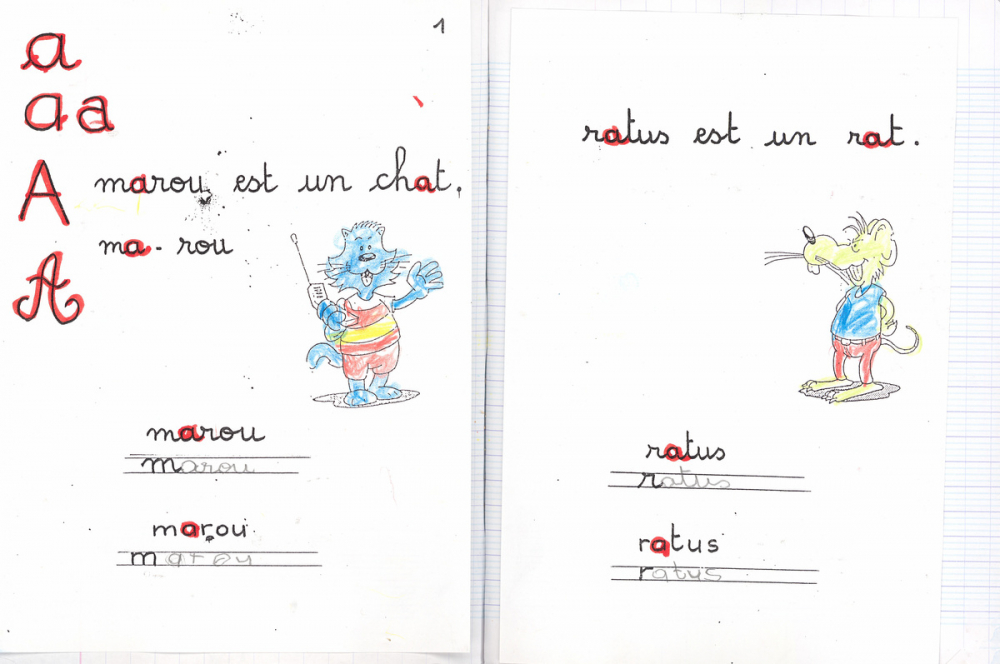 1
a
a a
A
marou est un chat.
ma - rou
A
marou
marou
marou
marou
ratus est un rat.
ratus
ratus
ratus
ratus